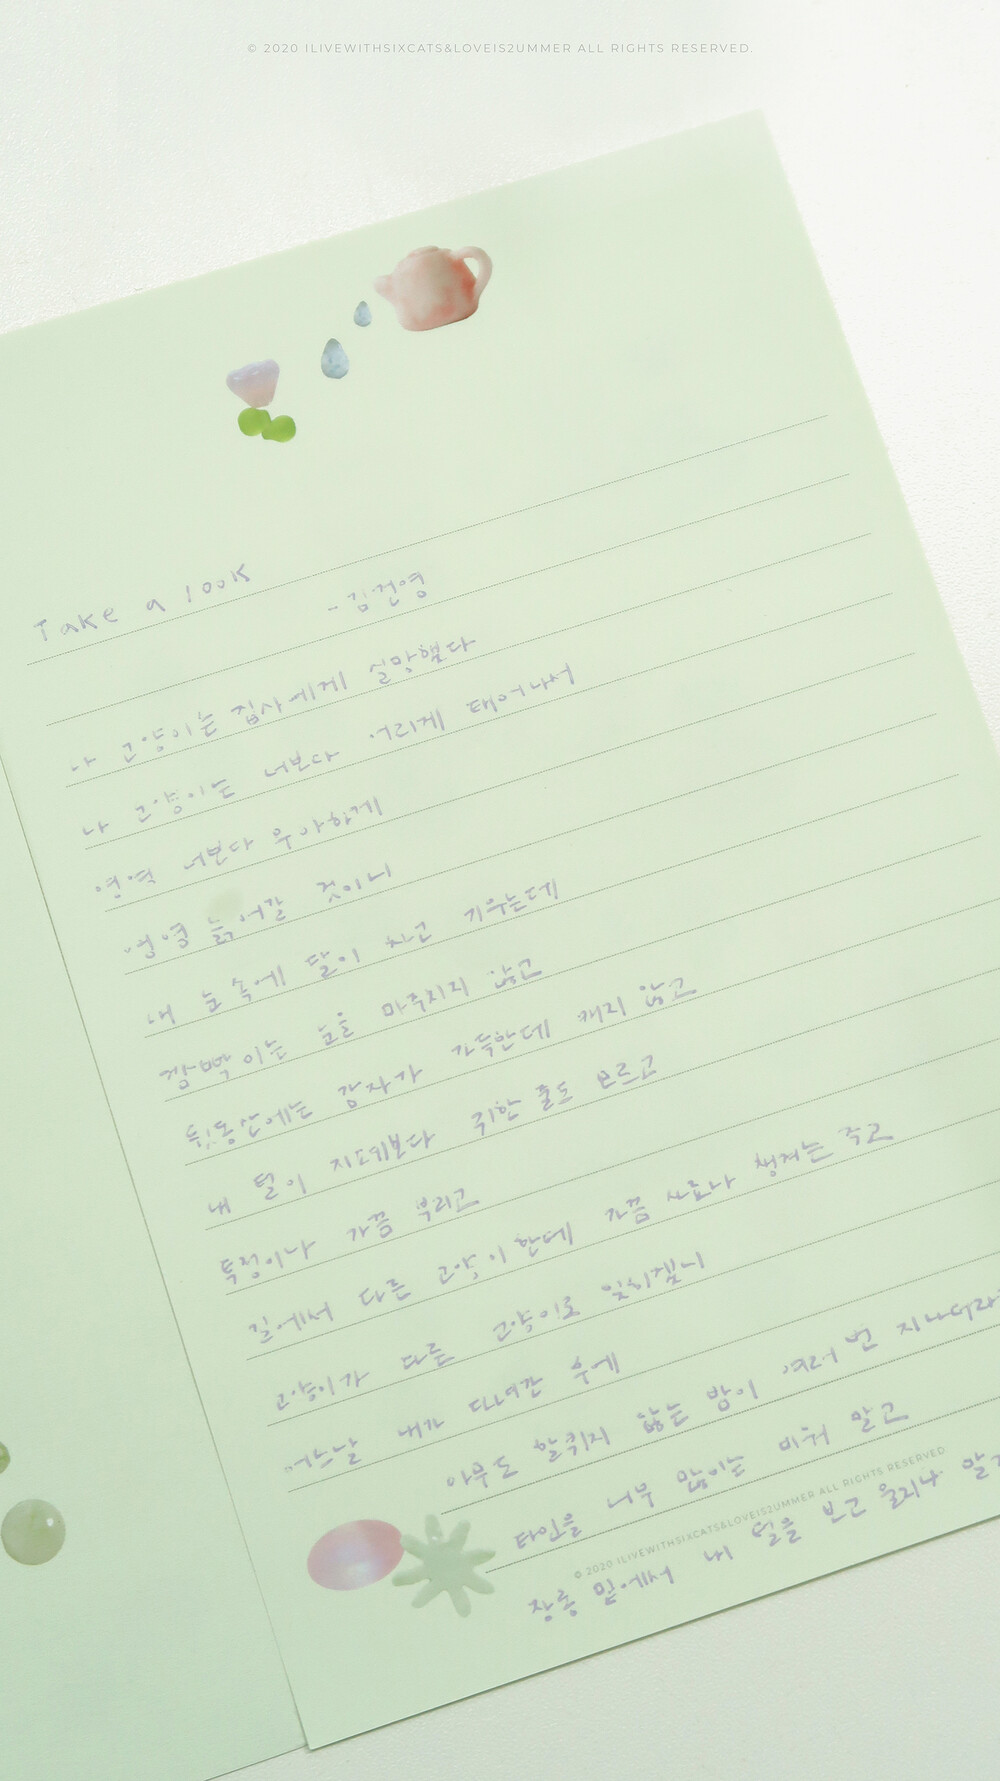 © 2020 ILIVEWITHSIXCATS&LOVEIS2UMMER ALL RIGHTS RESERVED.
Take a look
- 김건영
나 고양이는 집사에게 실망했다
나 고양이는 너보다 늦게 태어나서
영역 너보다 우아하게
영영 늙어갈 것이니
내 눈 속에 달이 차고 기우는데
깜빡이는 눈을 마주치지 않고
뒷동산에는 감자가 가득한데 캐지 않고
내 털이 지폐보다 귀한 줄도 모르고
투정이나 가끔 부리고
길에서 다른 고양이한테 가끔 사료나 챙겨주고
고양이가 다른 고양이로 잊혀지겠니
어느날 내가 다녀간 후에
아무도 할퀴지 않는 밤이 여러 번 지나더라도
타인을 너무 많이는 미워 말고
장롱 밑에서 내 털을 보고 울지나 말
© 2020 ILIVEWITHSIXCATS&LOVEIS2UMMER ALL RIGHTS RESERVED.